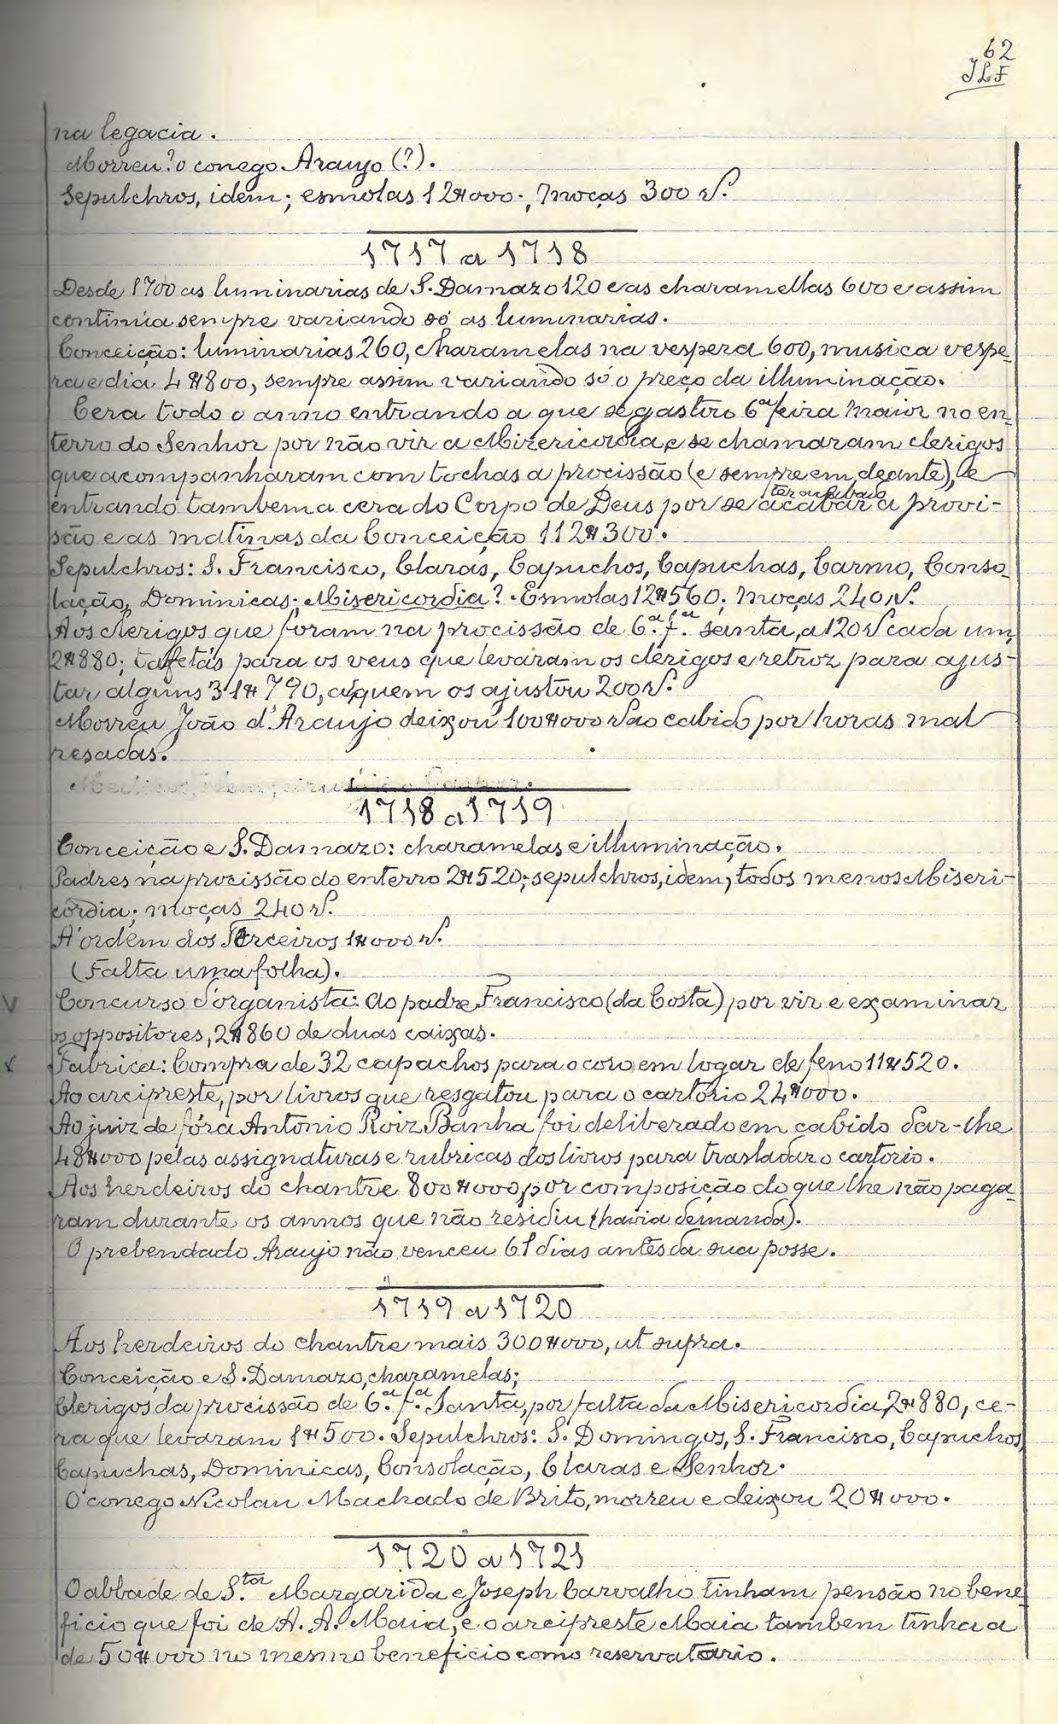 62
JLF
na legacia.
Morreu? o conego Araujo (?).
Sepulchros, idem; esmolas 12$000; moças 300 rs.
1717 a 1718
Desde 1700 as luminarias de S. Damazo 120 e as charamellas 600 e assim
continúa sempre variando só as luminarias.
Conceição: luminarias 260, charamelas na vespera 600, musica vespe-
ra e dia 4$800, sempre assim variando só o preço da illuminação.
Cera todo o anno entrando a que se gastou 6ª feira maior no en-
terro do Senhor por não vir a Mizericordia e se chamaram clerigos
que acompanharam com tochas a procissão (e sempre em deante), e
entrando tambem a cera do Corpo de Deus por se acabar a provi-
são e as matinas da Conceição 112$300.
Sepulchros: S. Francisco, Claras, Capuchos, Capuchas, Carmo, Conso-
lação, Dominicas; Misericordia?. Esmolas 12$560; moças 240 rs.
Aos clerigos que foram na procissão de 6ª fª santa, a 120 rs cada um,
2$880; tafetás para os veus que levaram os clerigos e retroz para ajus-
tar alguns 31$790, a quem os ajustou 200 rs.
Morreu João d'Araujo deixou 100$000 rs ao cabido por horas mal
resadas.
1718 a 1719
Conceição e S. Damazo: charamelas e illuminação.
Padres na procissão do enterro 2$520; sepulchros, idem, todos menos Miseri-
cordia; moças 240 rs.
A' ordem dos Terceiros 1$000 rs.
(Falta uma folha).
Concurso d'organista: Ao padre Francisco (da Costa) por vir e examinar
os oppositores, 2$860 de duas caixas.
Fabrica: Compra de 32 capachos para o coro em logar de feno 11$520.
Ao arcipreste, por livros que resgatou para o cartorio 24$000.
Ao juiz de fóra Antonio Roiz Banha foi deliberado em cabido dar-lhe
48$000 pelas assignaturas e rubricas dos livros para trasladar o cartorio.
Aos herdeiros do chantre 800$000, por composição do que lhe não paga-
ram durante os annos que não residiu (havia demanda).
O prebendado Araujo não venceu 61 dias antes da sua posse.
1719 a 1720
Aos herdeiros do chantre mais 300$000, ut supra.
Conceição e S. Damazo, charamelas;
Clerigos da procissão de 6ª fª Santa, por falta da Misericordia, 2$880, ce-
ra que levaram 1$500. Sepulchros: S. Domingos, S. Francisco, Capuchos,
Capuchas, Dominicas, Consolação, Claras e Senhor.
O conego Nicolau Machado de Brito, morreu e deixou 20$000.
1720 a 1721
O abbade de S.ta Margarida e Joseph Carvalho tinham pensão no bene-
ficio que foi de A. A. Maia, e o arcipreste Maia tambem tinha a
de 50$000 no mesmo beneficio como reservatario.